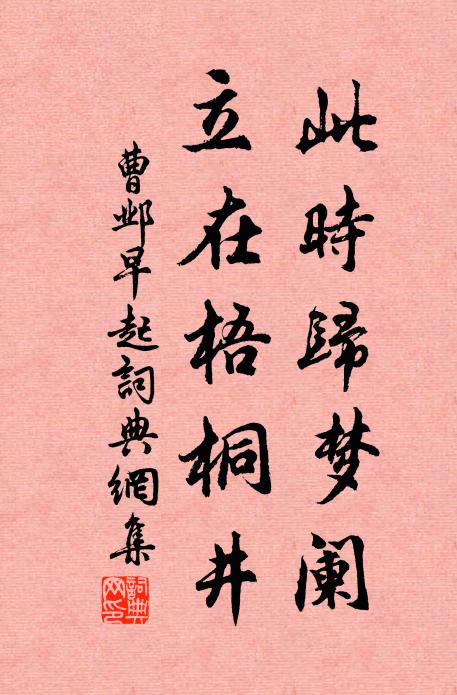 此時歸梦阑
立在梧桐井
曹邺早起詞典網集
詞典网印